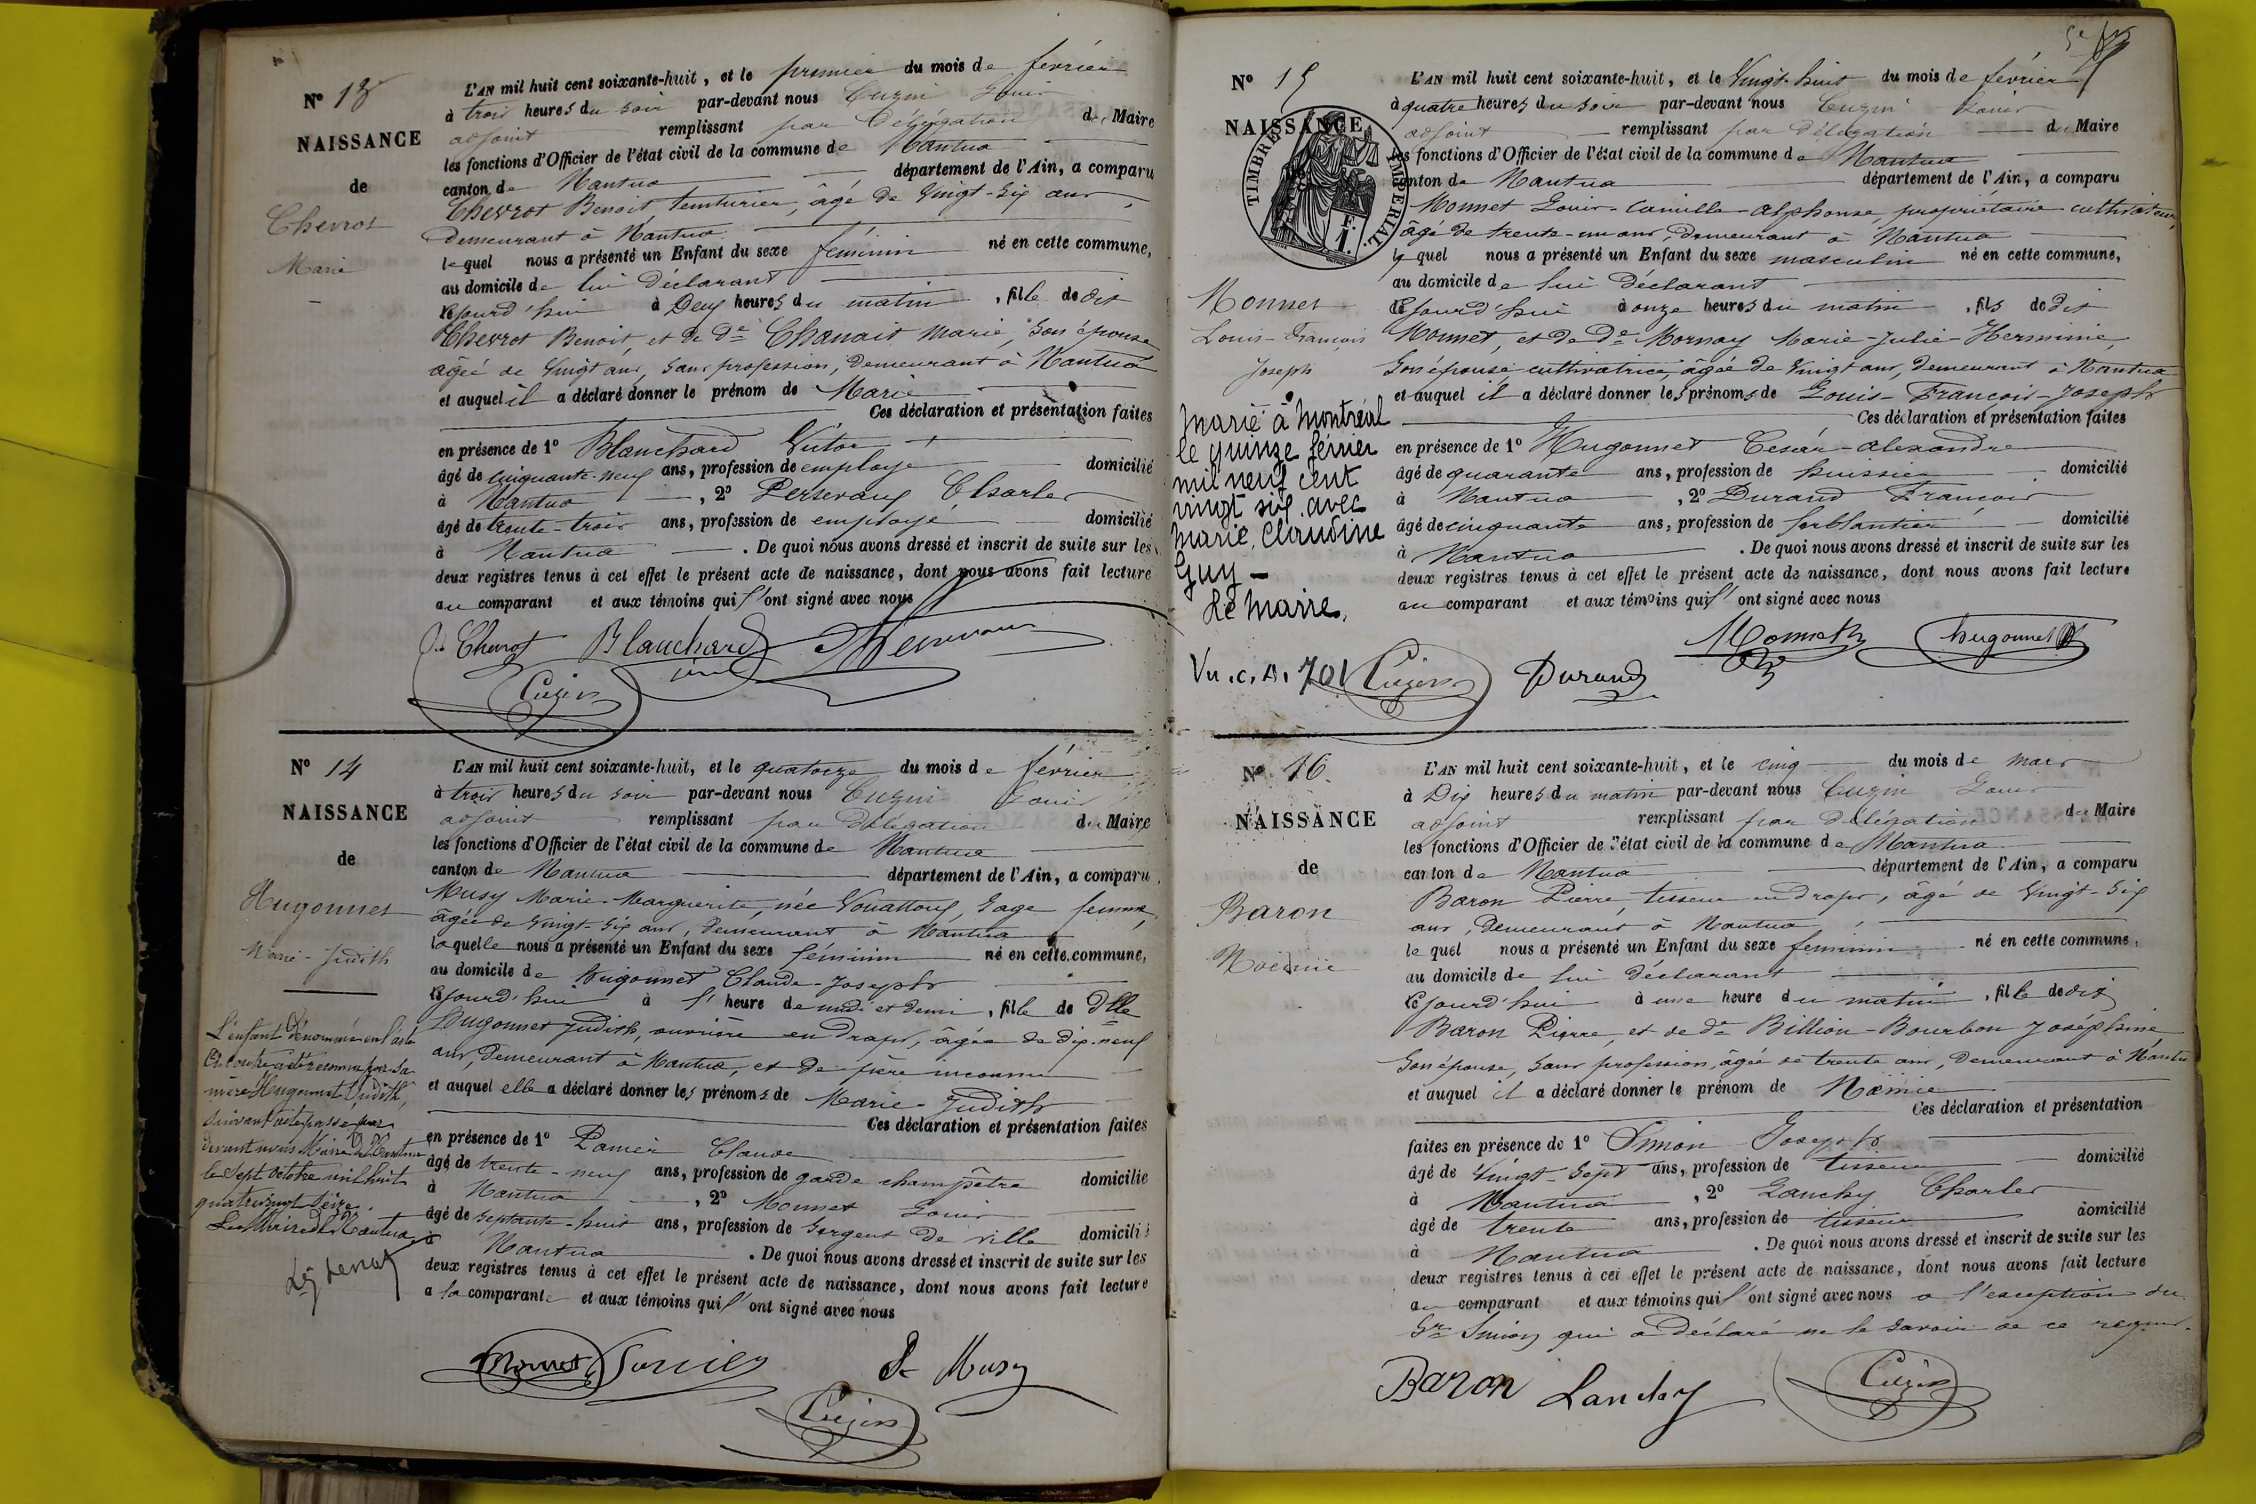 Nº 13
NAISSANCE
de
Chevrot
Marie
L'AN mil huit cent soixante-huit, et le premier du mois de février
à trois heures du soir par-devant nous Cuzin Louis
adjoint remplissant par délégation du Maire
les fonctions d'Officier de l'état civil de la commune de Nantua
canton de Nantua département de l'Ain, a comparu
Chevrot Benoit, teinturier, âgé de vingt-six ans,
demeurant à Nantua
lequel nous a présenté un Enfant du sexe féminin né en cette commune,
au domicile de lui déclarant
cejourd'hui à deux heures du matin, fille de dit
Chevrot Benoit, et de de Chanait Marie, son épouse
âgée de vingt ans, sans profession, demeurant à Nantua
et auquel il a déclaré donner le prénom de Marie
Ces déclaration et présentation faites
en présence de 1º Blanchard Victor
âgé de cinquante-neuf ans, profession de employé domicilié
à Nantua, 2º Persevaux Charles
âgé de trente-trois ans, profession de employé domicilié
à Nantua. De quoi nous avons dressé et inscrit de suite sur les
deux registres tenus à cet effet le présent acte de naissance, dont nous avons fait lecture
au comparant et aux témoins qui l'ont signé avec nous
Chevrot Blanchard
Cuzin
Nº 14
NAISSANCE
de
Hugonnet
Marie-Judith
L'AN mil huit cent soixante-huit, et le quatorze du mois de février
à trois heures du soir par-devant nous Cuzin Louis
adjoint remplissant par délégation du Maire
les fonctions d'Officier de l'état civil de la commune de Nantua
canton de Nantua département de l'Ain, a comparu
Musy Marie-Marguerite, née Vouattoux, sage femme,
âgée de vingt-six ans, demeurant à Nantua
laquelle nous a présenté un Enfant du sexe féminin né en cette commune,
au domicile de Hugonnet Claude-Joseph
cejourd'hui à l'heure de midi et demi, fille de Dlle
Hugonnet Judith, ouvrière en draps, âgée de dix-neuf
ans, demeurant à Nantua, et de père inconnu
et auquel elle a déclaré donner les prénoms de Marie-Judith
Ces déclaration et présentation faites
en présence de 1º Panier Claude
âgé de trente-neuf ans, profession de garde champêtre domicilié
à Nantua, 2º Monnet Louis
âgé de septante-huit ans, profession de sergent de ville domicilié
à Nantua. De quoi nous avons dressé et inscrit de suite sur les
deux registres tenus à cet effet le présent acte de naissance, dont nous avons fait lecture
a la comparante et aux témoins qui l'ont signé avec nous
L'enfant dénommé en l'acte
ci-contre a été reconnu par sa
mère Hugonnet Judith,
suivant acte passé par
devant nous Maire de Nantua
le sept octobre mil huit
quatre vingt seize.
Le Maire de Nantua
Monnet Panier Musy
Cuzin
Nº 15
NAISSANCE
TIMBRE IMPERIAL
F.
1.
Monnet
Louis-François
Joseph
L'AN mil huit cent soixante-huit, et le vingt-huit du mois de février
à quatre heures du soir par-devant nous Cuzin Louis
adjoint remplissant par délégation du Maire
les fonctions d'Officier de l'état civil de la commune de Nantua
canton de Nantua département de l'Ain, a comparu
Monnet Louis-Camille-Alphonse, propriétaire cultivateur,
âgé de trente-un ans, demeurant à Nantua
lequel nous a présenté un Enfant du sexe masculin né en cette commune,
au domicile de lui déclarant
cejourd'hui à onze heures du matin, fils de dit
Monnet, et de de Mornay Marie-Julie-Herminie,
son épouse cultivatrice, âgée de vingt ans, demeurant à Nantua
et auquel il a déclaré donner les prénoms de Louis-François-Joseph
Ces déclaration et présentation faites
en présence de 1º Hugonnet César-Alexandre
âgé de quarante ans, profession de huissier domicilié
à Nantua, 2º Durand François
âgé de cinquante ans, profession de ferblantier domicilié
à Nantua. De quoi nous avons dressé et inscrit de suite sur les
deux registres tenus à cet effet le présent acte de naissance, dont nous avons fait lecture
au comparant et aux témoins qui l'ont signé avec nous
Marié à Montréal
le quinze février
mil neuf cent
vingt six avec
Marie, Claudine
Guy -
Le Maire,
Vu. C. A. 701
Monnet Hugonnet
Cuzin Durand
Nº 16
NAISSANCE
de
Baron
Noëmie
L'AN mil huit cent soixante-huit, et le cinq du mois de mars
à dix heures du matin par-devant nous Cuzin Louis
adjoint remplissant par délégation du Maire
les fonctions d'Officier de l'état civil de la commune de Nantua
canton de Nantua département de l'Ain, a comparu
Baron Pierre, tisseur en draps, âgé de vingt-six
ans, demeurant à Nantua
lequel nous a présenté un Enfant du sexe féminin né en cette commune,
au domicile de lui déclarant
cejourd'hui à une heure du matin, fille de dit
Baron Pierre, et de de Billion-Bourbon Joséphine
son épouse, sans profession, âgée de trente ans, demeurant à Nantua
et auquel il a déclaré donner le prénom de Noëmie
Ces déclaration et présentation
faites en présence de 1º Simion Joseph
âgé de vingt-sept ans, profession de tisseur domicilié
à Nantua, 2º Lanchy Charles
âgé de trente ans, profession de tisseur domicilié
à Nantua. De quoi nous avons dressé et inscrit de suite sur les
deux registres tenus à cet effet le présent acte de naissance, dont nous avons fait lecture
au comparant et aux témoins qui l'ont signé avec nous a l'exception du
Sr Simion qui a déclaré ne le savoir de ce requis.
Baron Lanchy Cuzin